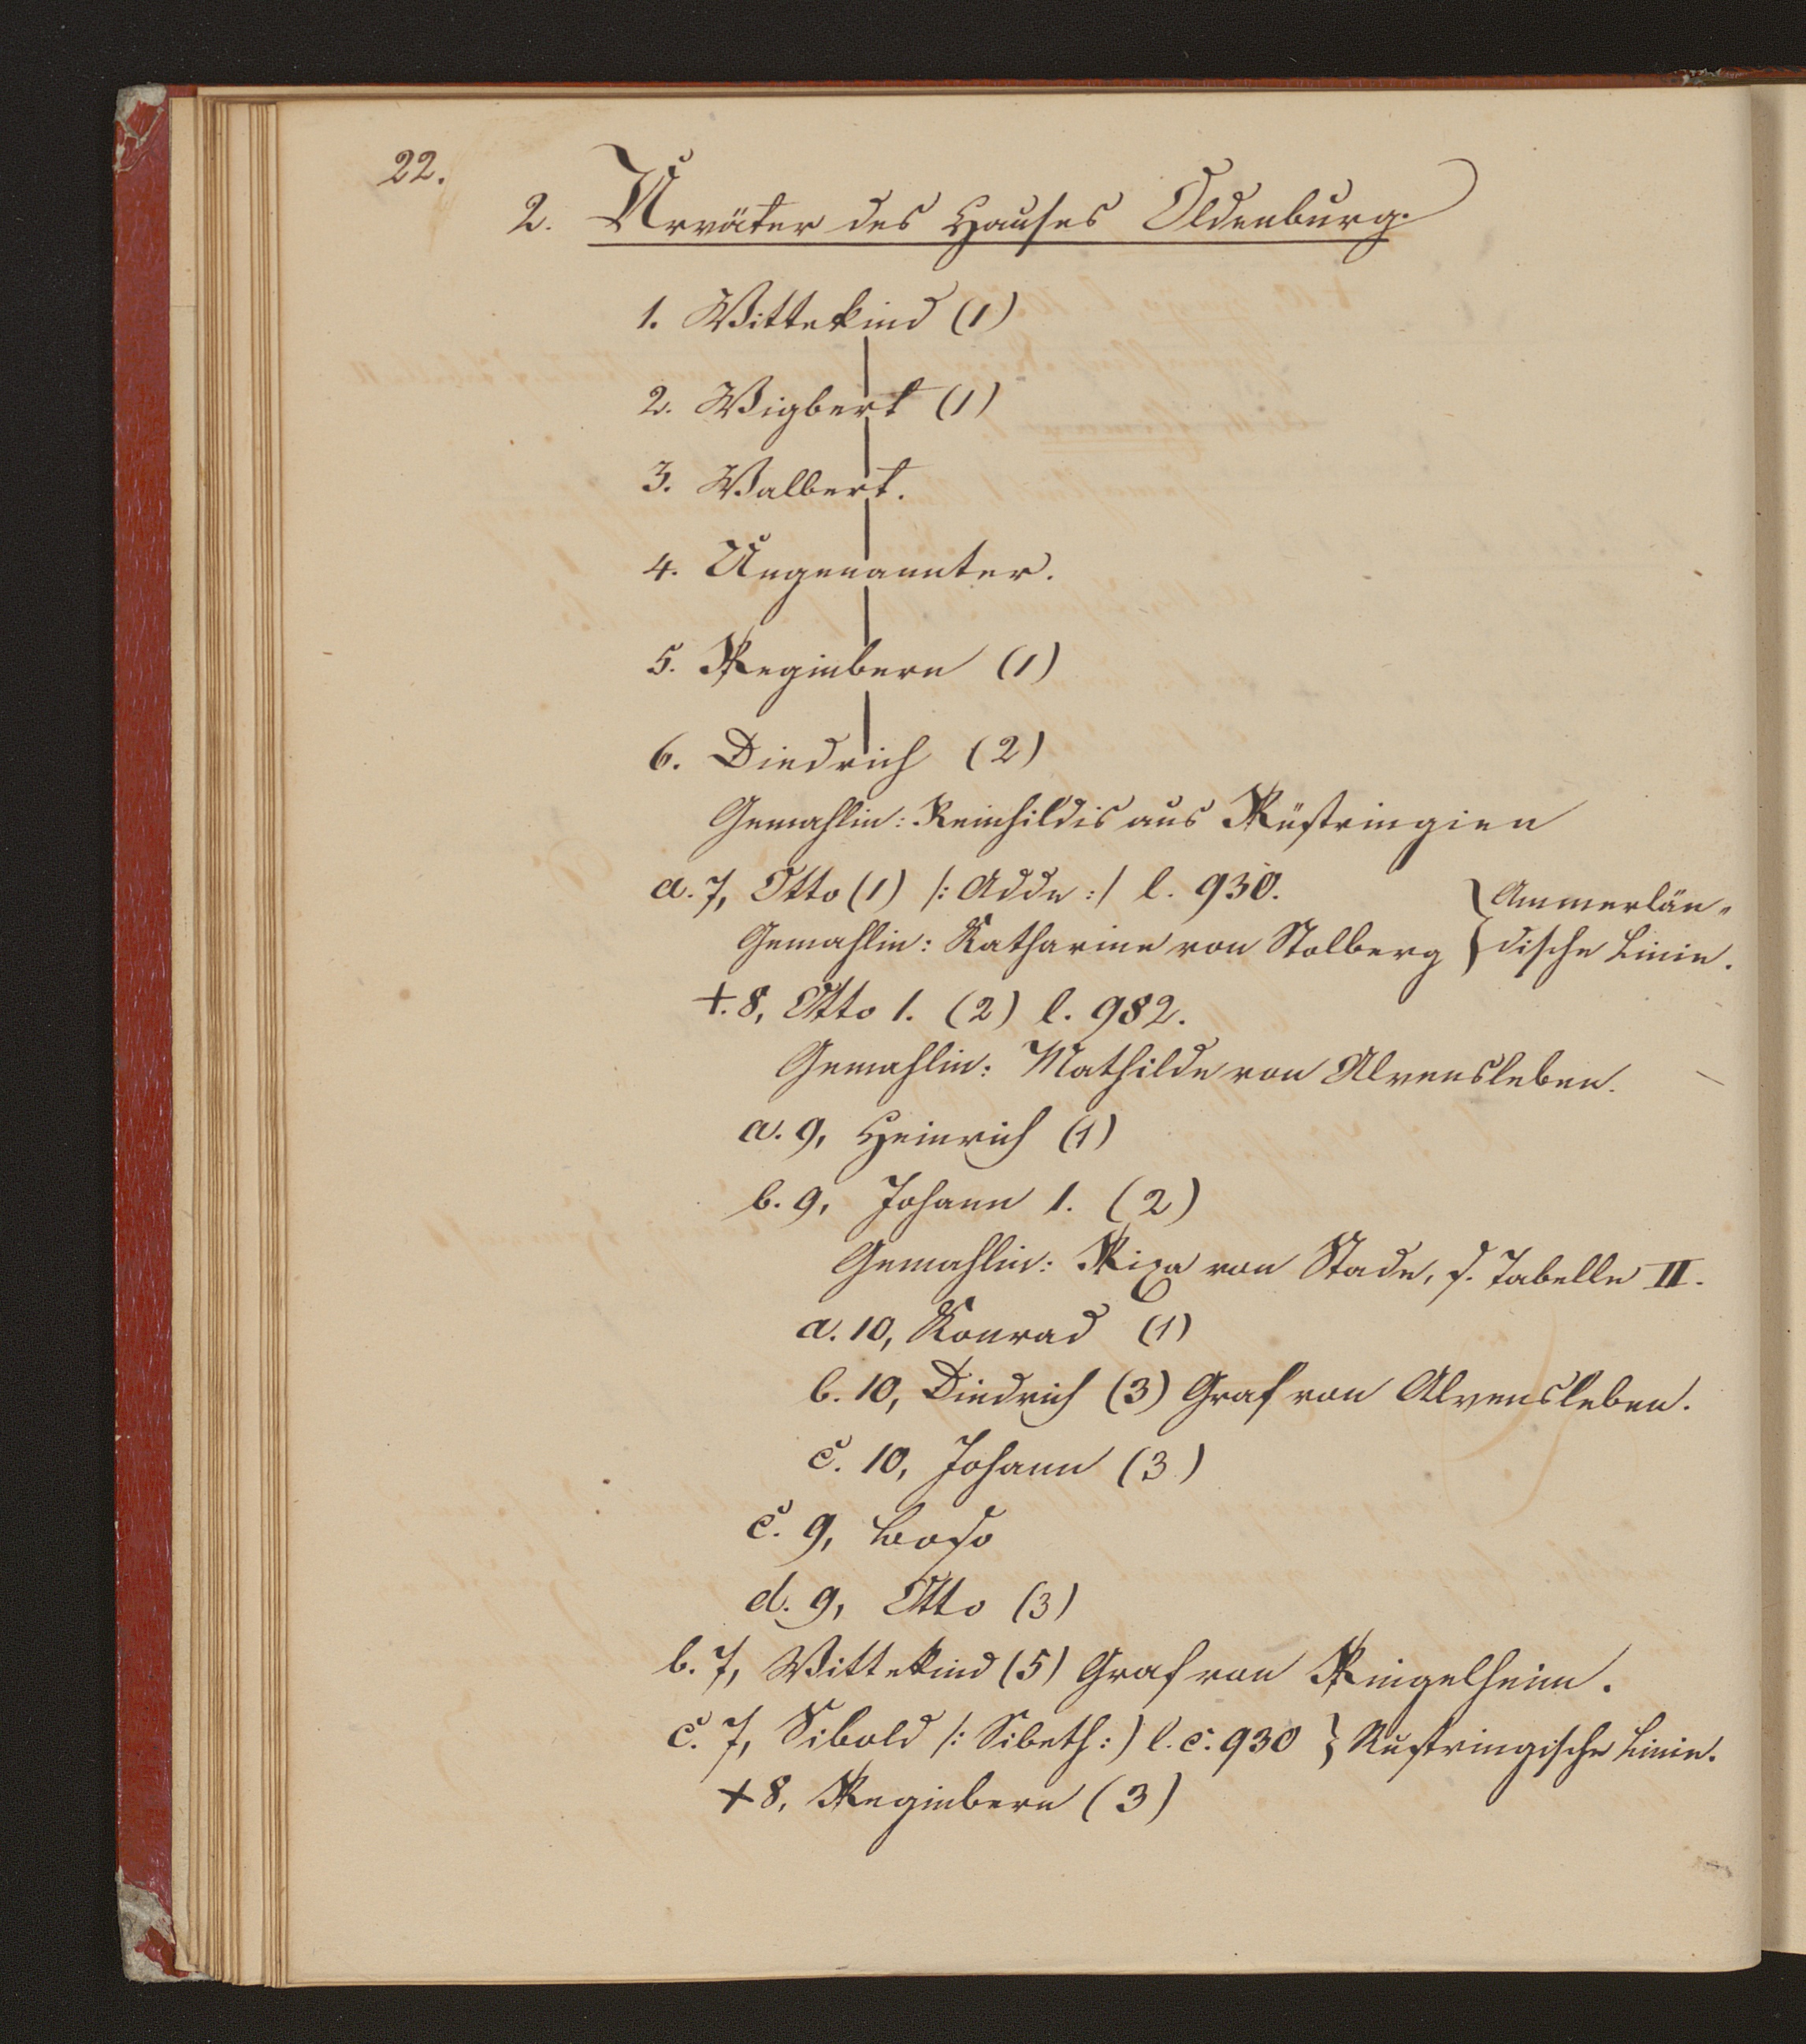 22.
2. Urväter des Hauses Oldenburg.
1. Wittekind (1)
2. Wigbert (1)
3. Walbert.
4. Ungenannter.
5. Reginbern (1)
6. Diedrich (2)
Gemahlin: Reinhildis aus Rüstringien
a. 7, Otto (1) /: Adde :/ l. 930.
Gemahlin: Katharine von Stolberg } Ammerlän-
dische Linie.
+. 8, Otto 1. (2) l. 982.
Gemahlin: Mathilde von Alvensleben.
a. 9, Heinrich (1)
b. 9, Johann 1. (2)
Gemahlin: Rixa von Stade, s. Tabelle II.
a. 10, Konrad (1)
b. 10, Diedrich (3) Graf von Alvensleben.
c. 10, Johann (3)
c. 9, Boso
d. 9, Otto (3)
b. 7, Wittekind (5) Graf von Ringelheim.
c. 7, Sibold /: Sibeth :) l. c. 930 } Rustringische Linie.
+ 8, Reginbern (3)